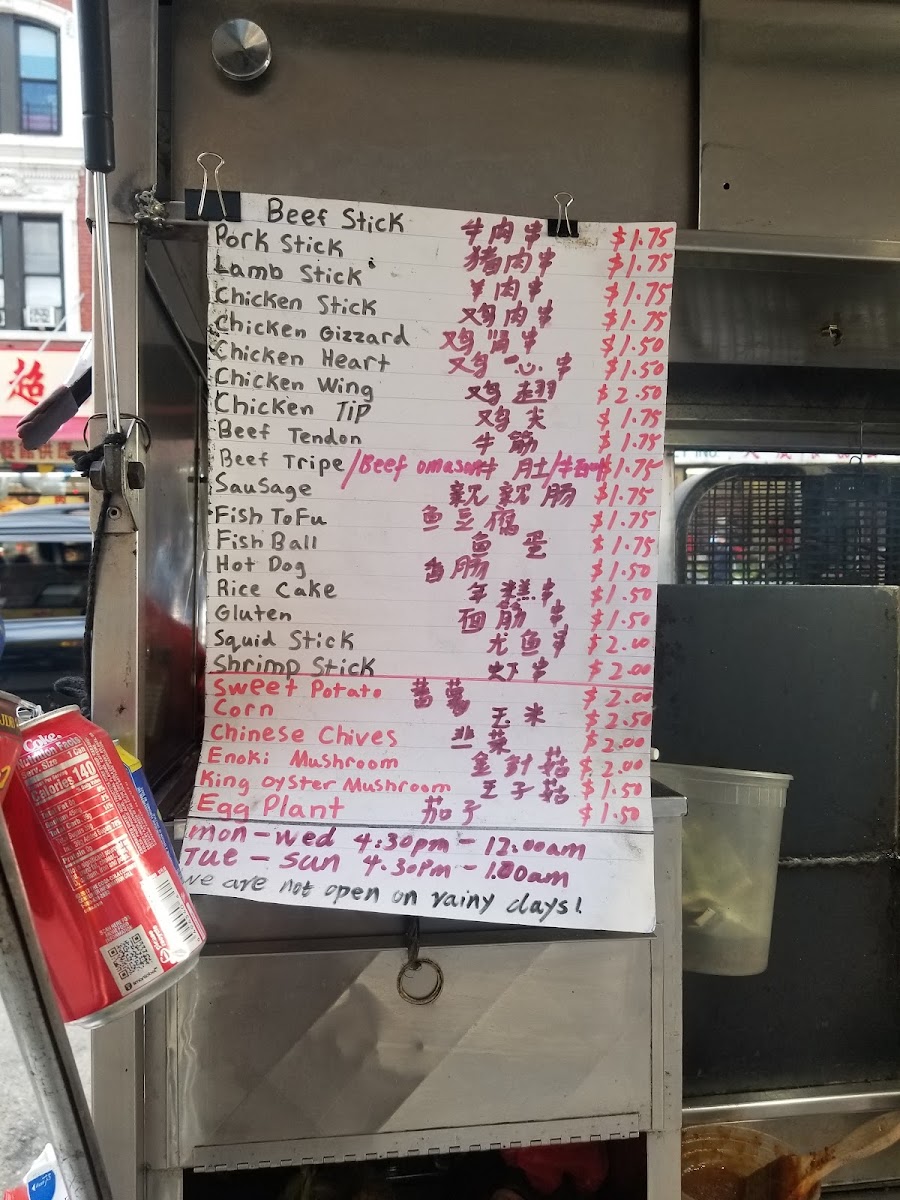 Beef Stick 牛肉串 $1.75
Pork Stick 猪肉串 $1.75
Lamb Stick 羊肉串 $1.75
Chicken Stick 鸡肉串 $1.75
Chicken Gizzard 鸡肾串 $1.50
Chicken Heart 鸡心串 $1.50
Chicken Wing 鸡翅 $2.50
Chicken Tip 鸡尖 $1.75
Beef Tendon 牛筋 $1.75
Beef Tripe/Beef omasum 牛肚/牛百叶 $1.75
Sausage 亲亲肠 $1.75
Fish ToFu 鱼豆腐 $1.75
Fish Ball 鱼蛋 $1.75
Hot Dog 香肠 $1.50
Rice Cake 年糕串 $1.50
Gluten 面筋串 $1.50
Squid Stick 尤鱼串 $2.00
Shrimp Stick 虾串 $2.00
Sweet Potato 蕃薯 $2.00
Corn 玉米 $2.50
Chinese Chives 韭菜 $2.00
Enoki Mushroom 金針菇 $2.00
King Oyster Mushroom 王子菇 $1.50
Egg Plant 茄子 $1.50
Mon - Wed 4:30pm - 12:00am
Tue - Sun 4.30Pm - 1.00am
We are not open on rainy days!
Coke
Nutrition Facts
Calories 140